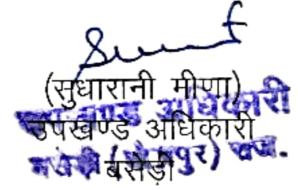 (सुधारानी मीणा)
उपखण्ड अधिकारी
बसेड़ी
उपखण्ड अधिकारी
बसेड़ी (धौलपुर) राज.